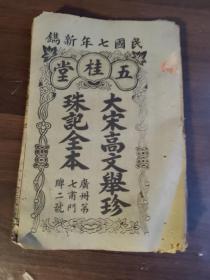 民國七年新鐫
五桂堂
大宋高文舉珍
珠記全本
廣州第
七甫門
牌二號